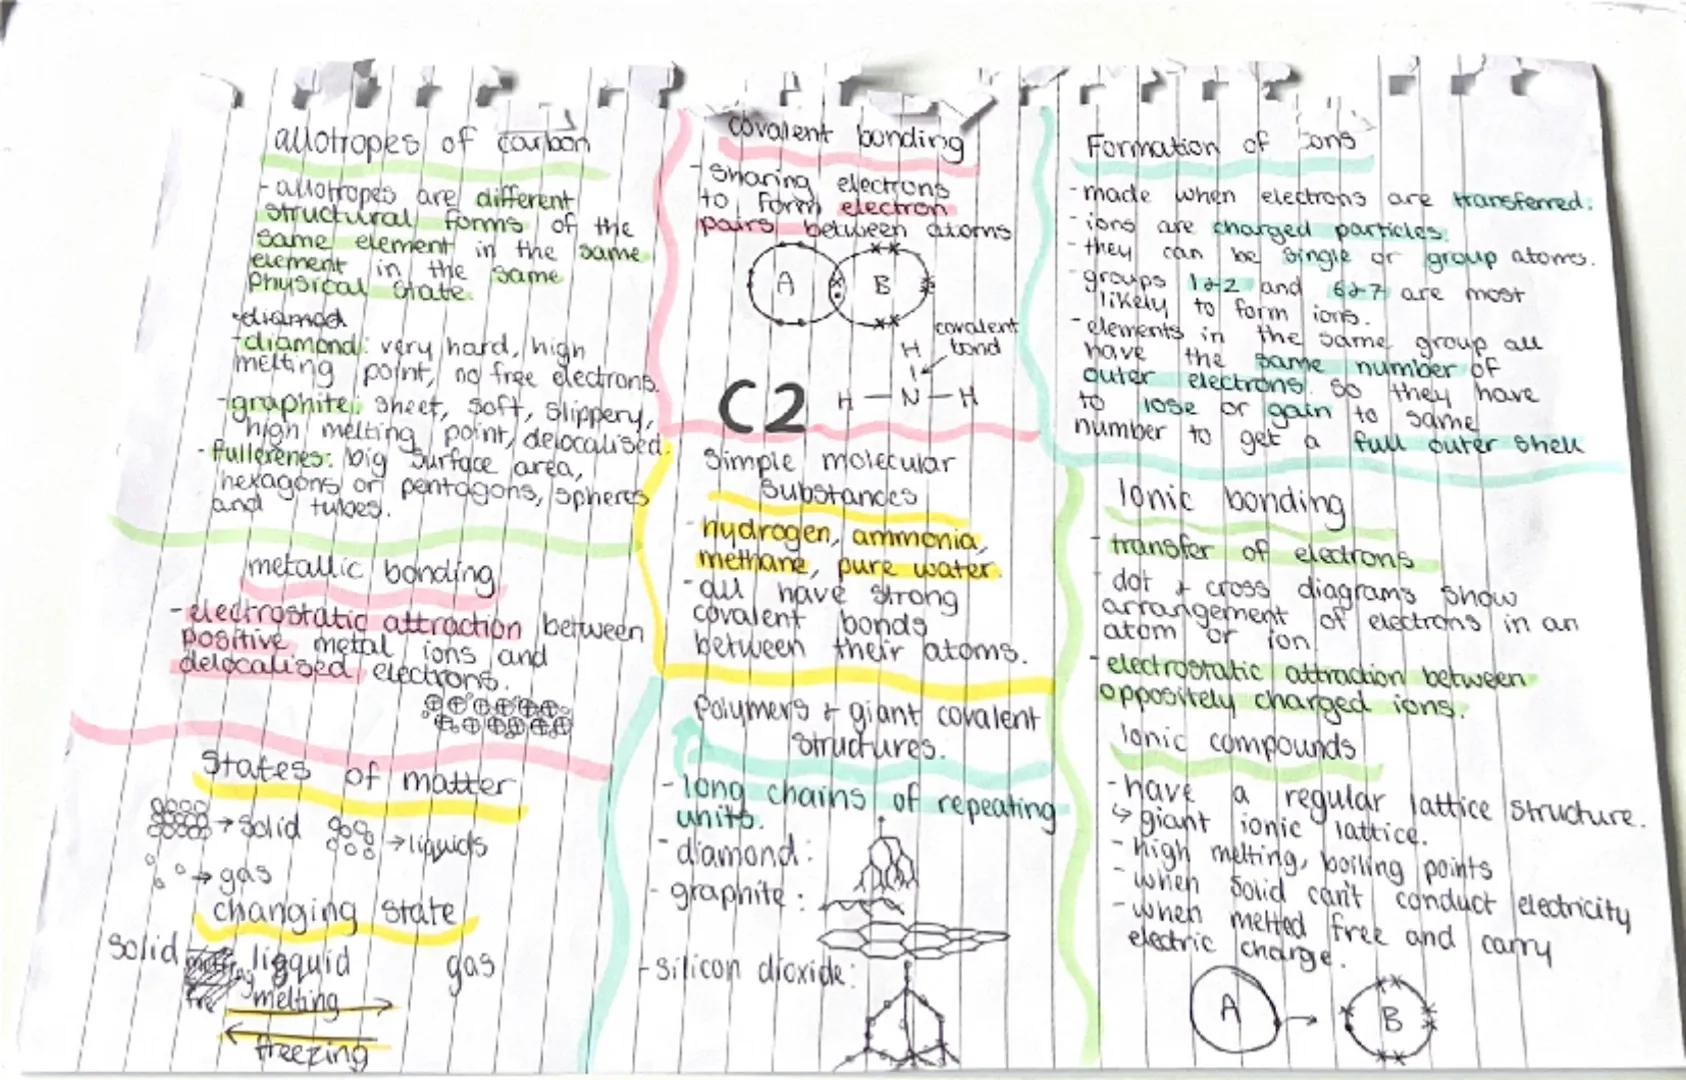 allotropes of carbon
- allotropes are different
structural forms of the
same element in the same
element in the same
physical state.
diamod
- diamond: very hard, high
melting point, no free electrons.
- graphite: sheet, soft, slippery,
high melting point, delocalised.
- fullerenes: big surface area,
hexagons or pentagons, spheres
and tubes.
metallic bonding
- electrostatic attraction between
positive metal ions and
delocalised electrons.
States of matter
→ solid
→ liquids
→ gas
changing state
solid liqquid gas
melting
freezing
covalent bonding
- sharing electrons
to form electron
pairs between atoms
A B
covalent
bond
H
H - N - H
C2
Simple molecular
substances
- hydrogen, ammonia,
methane, pure water.
- all have strong
covalent bonds
between their atoms.
Polymers & giant covalent
structures.
- long chains of repeating
units.
- diamond:
- graphite:
- silicon dioxide:
Formation of ions
- made when electrons are transferred.
- ions are charged particles.
- they can be single or group atoms.
- groups 1&2 and 6&7 are most
likely to form ions.
- elements in the same group all
have the same number of
outer electrons. so they have
to lose or gain to same
number to get a full outer shell
Ionic bonding
- transfer of electrons
- dot & cross diagrams show
arrangement of electrons in an
atom or ion
- electrostatic attraction between
oppositely charged ions.
Ionic compounds
- have a regular lattice structure.
↳ giant ionic lattice.
- high melting, boiling points
- when solid can't conduct electricity
- when melted free and carry
electric charge.
A → B